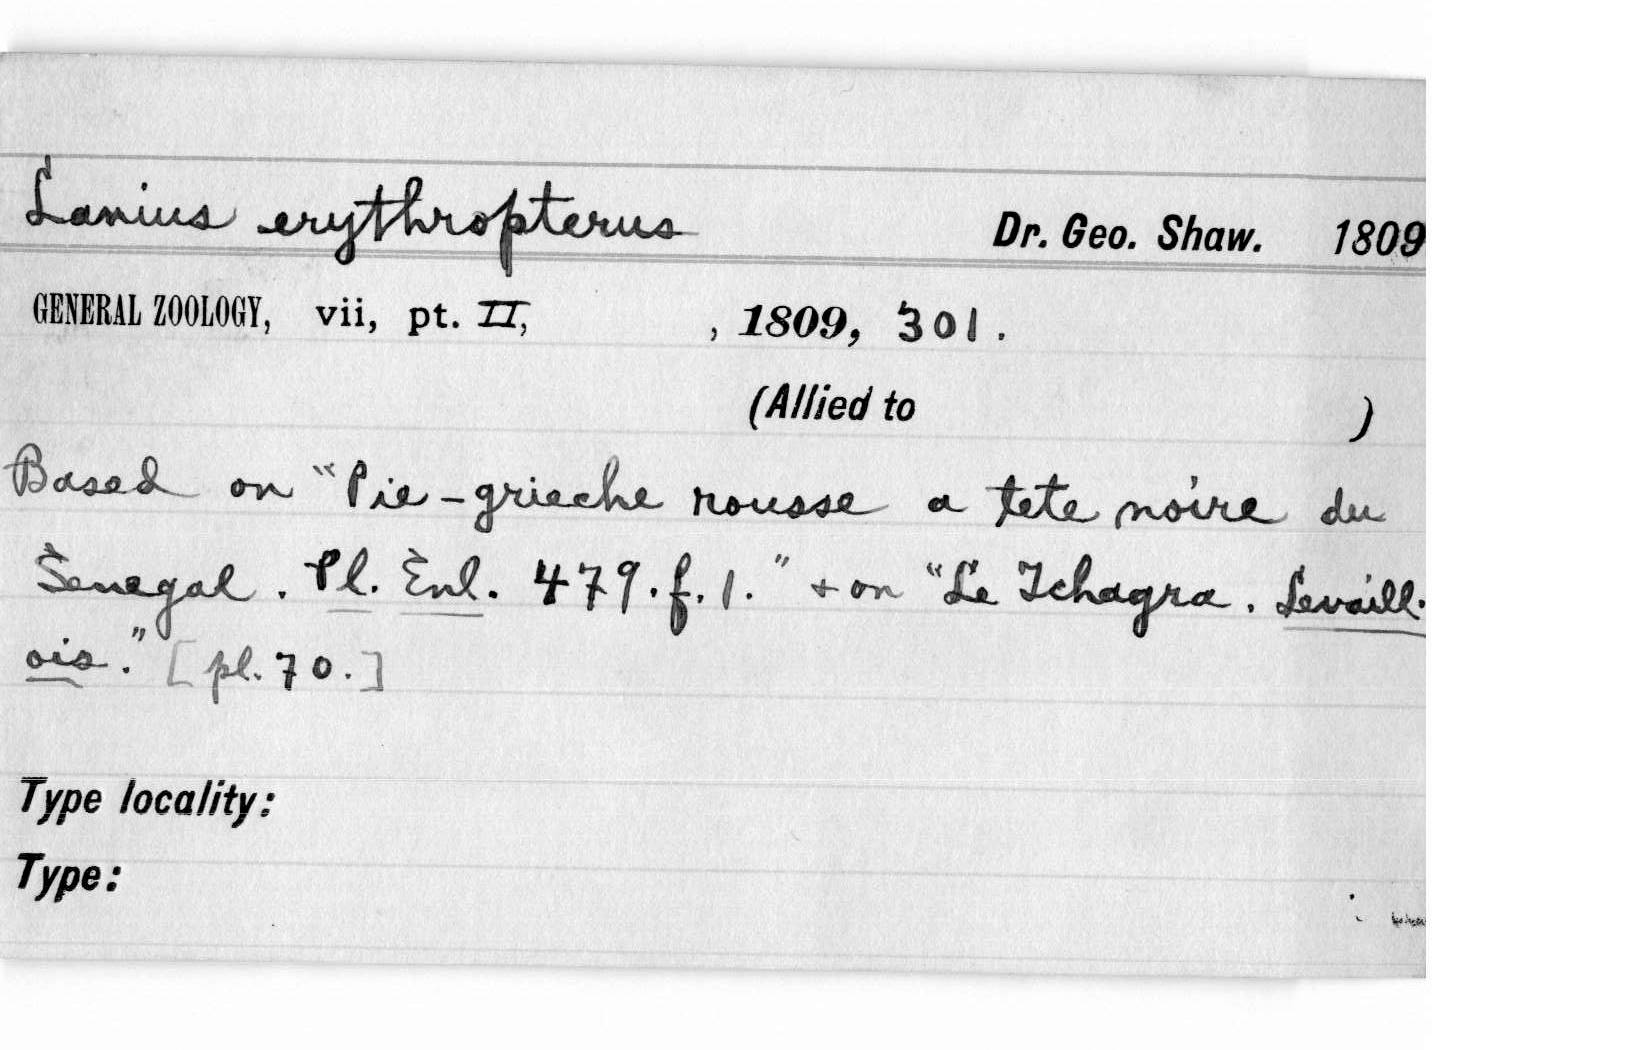 Lanius erythropterus Dr. Geo. Shaw. 1809
GENERAL ZOOLOGY, vii, pt. II, , 1809, 301.
(Allied to )
Based on "Pie-grieche rousse a tete noire du
Senegal. Pl. Enl. 479. f. 1." + on "Le Tchagra. Levaill.
ois." [pl. 70.]
Type locality:
Type: